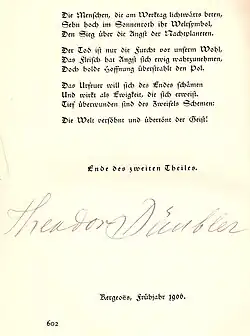 Die Menschen, die am Werktag lichtwärts beten,
Sehn hoch im Sonnenroth ihr Weltsymbol,
Den Sieg über die Angst der Nachtplaneten.
Der Tod ist nur die Furcht vor unserm Wohl,
Das Fleisch hat Angst sich ewig wahrzunehmen,
Doch holde Hoffnung überstrahlt den Pol.
Das Urfeuer will sich des Endes schämen
Und wirkt als Ewigkeit, die sich erweist.
Tief überwunden sind des Zweifels Schemen:
Die Welt versöhnt und übertönt der Geist!
Ende des zweiten Theiles.
Theodor Däubler
Frühjahr 1906.
602